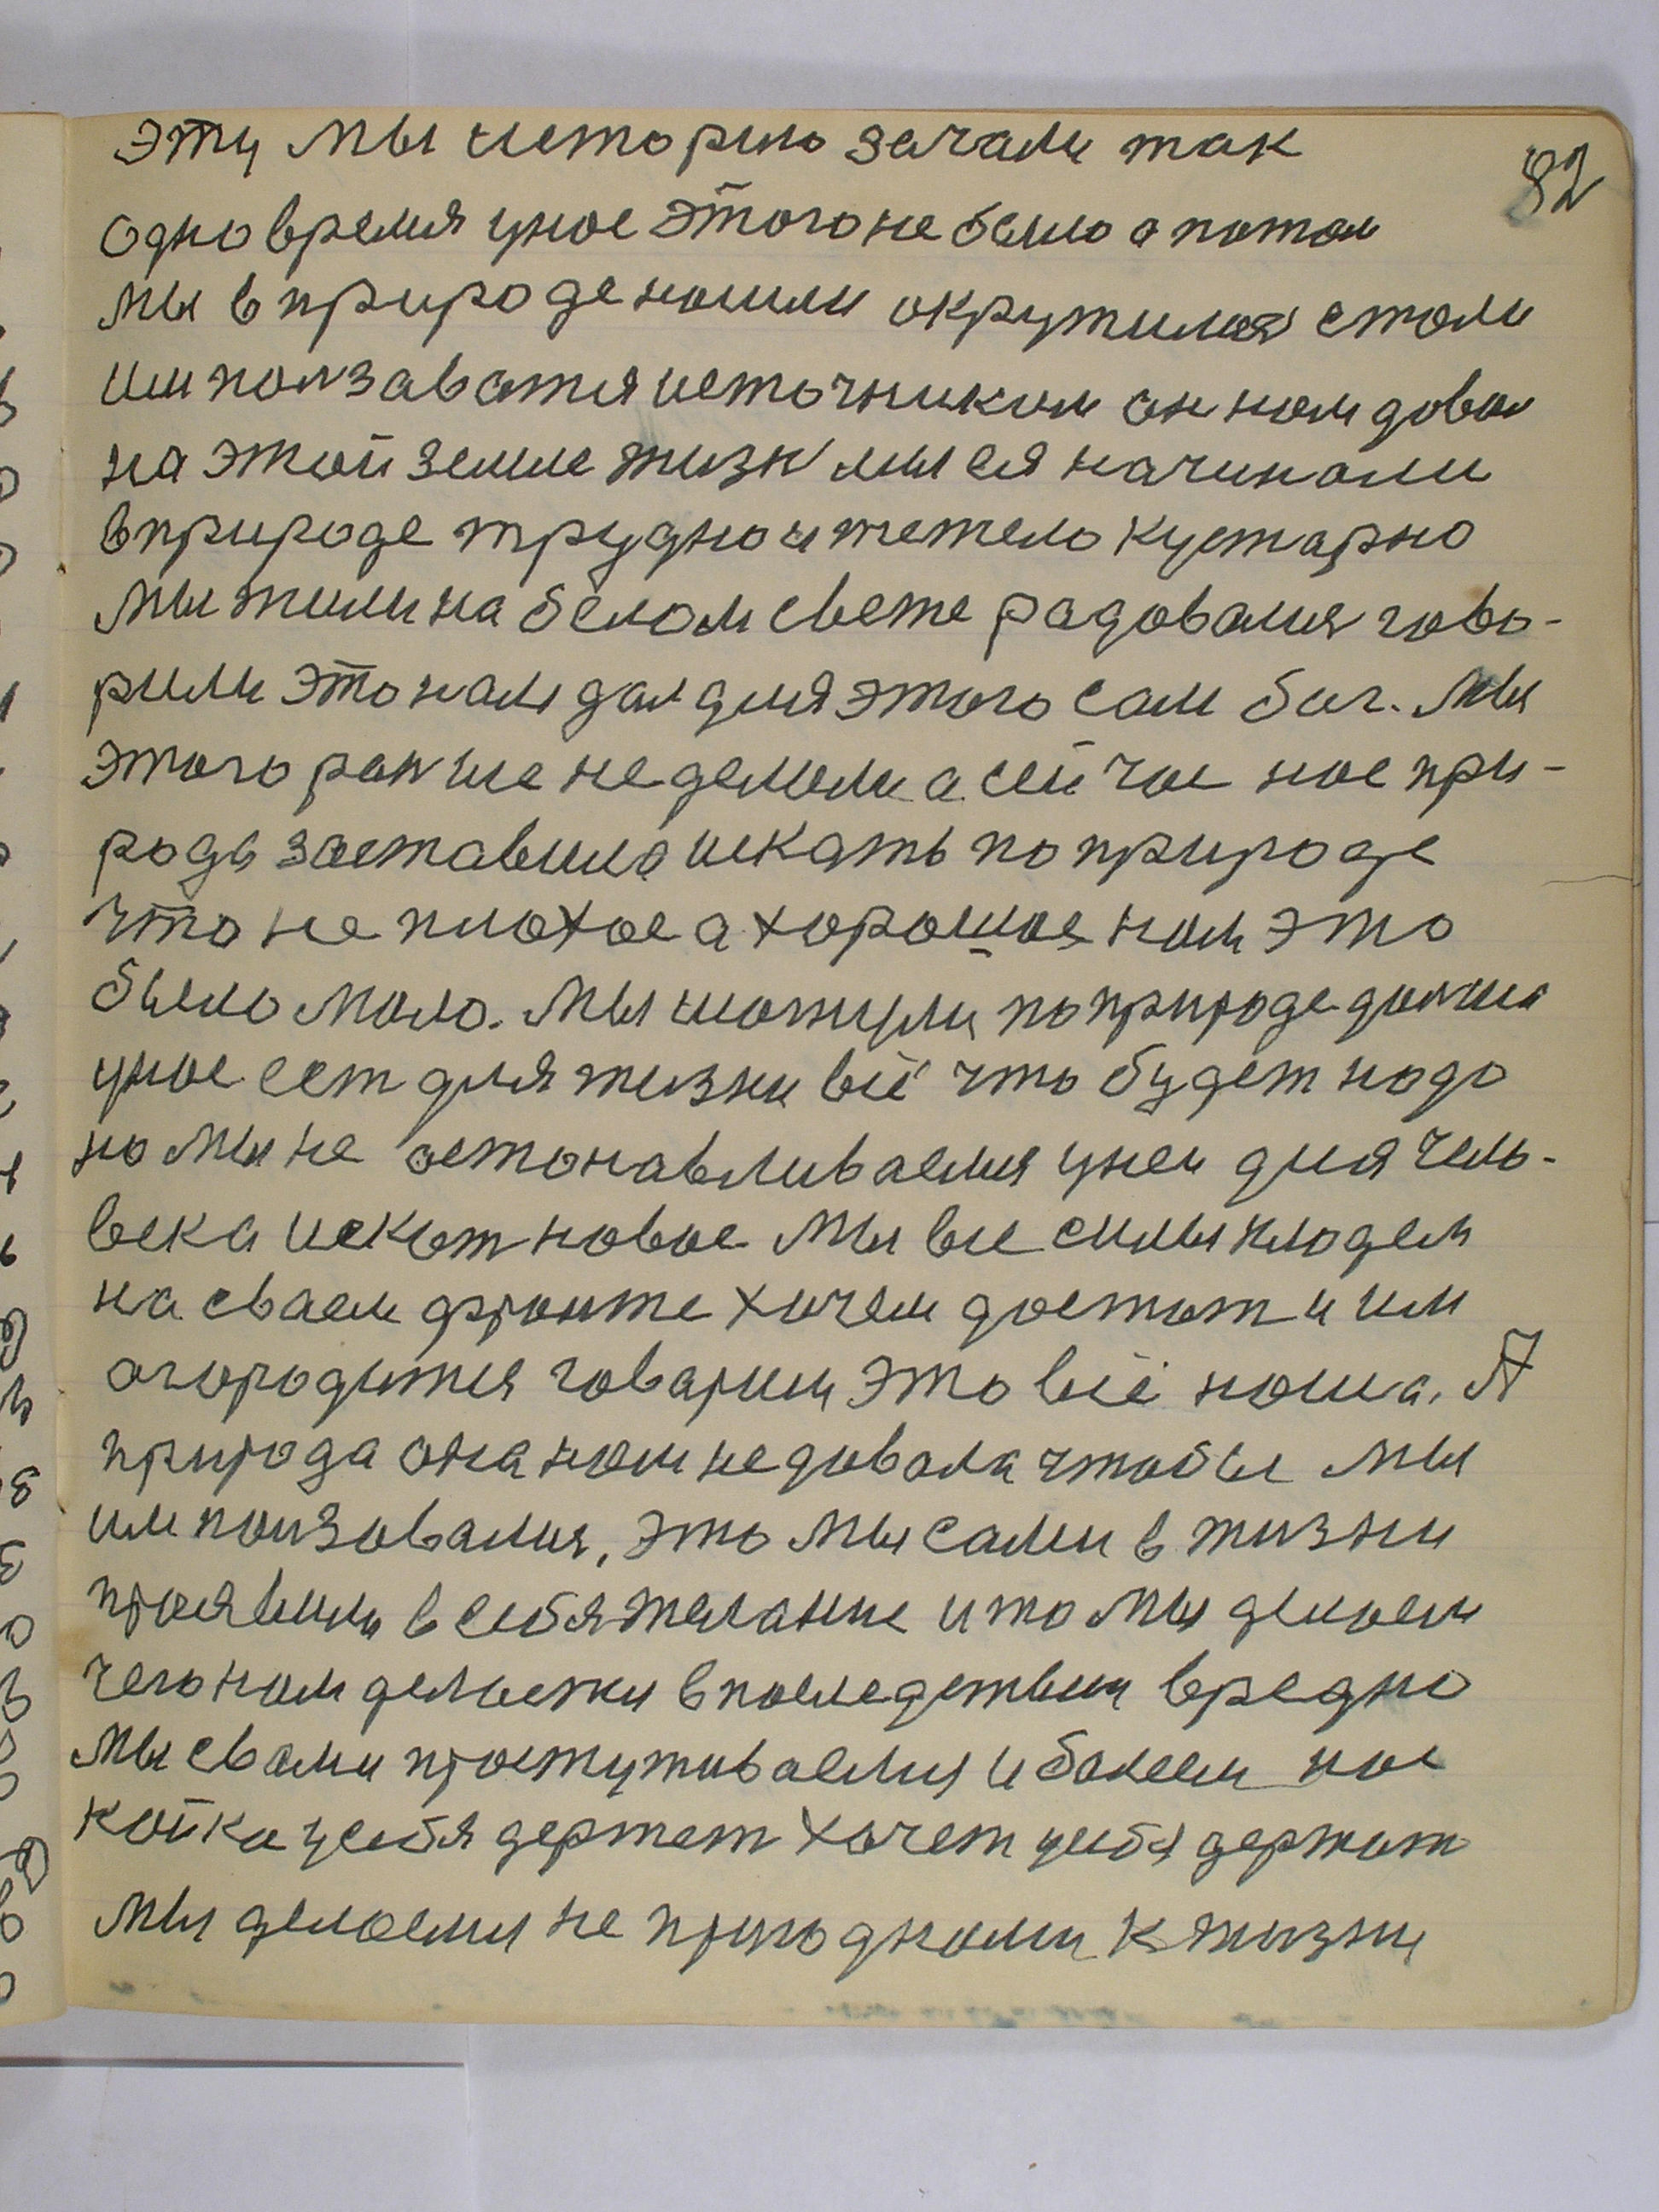 82
эту мы историю зачали так
одно время унас этого не было а потом
мы в природе нашли окружился стали
им ползаватся источником он нам давал
на этой земле жизн мы ея начинали
в природе трудно и тежело кустарно
мы жили на белом свете радовалися гово-
рили это нам дал для этого сам бог. Мы
этого ранше не делали а сейчас нас при-
рода заставила искать по природе
что не плохое а хорошое нам это
было мало. Мы шагнули по природе далше
унас ест для жизни всё что будет надо
но мы не останавливаемся уней для чело-
века искат новое мы все силы кладем
на сваем фронте хочем достат и им
огородится говарим это всё наша. А
природа она нам не давала чтобы мы
им ползовались, это мы сами в жизни
проявили в себя желание и то мы делаем
чего нам делается впоследствии вредно
мы свами простуживаемся и болеем нас
койка усебя держет хочет усебя держат
мы делаемся не пригодными к жизни